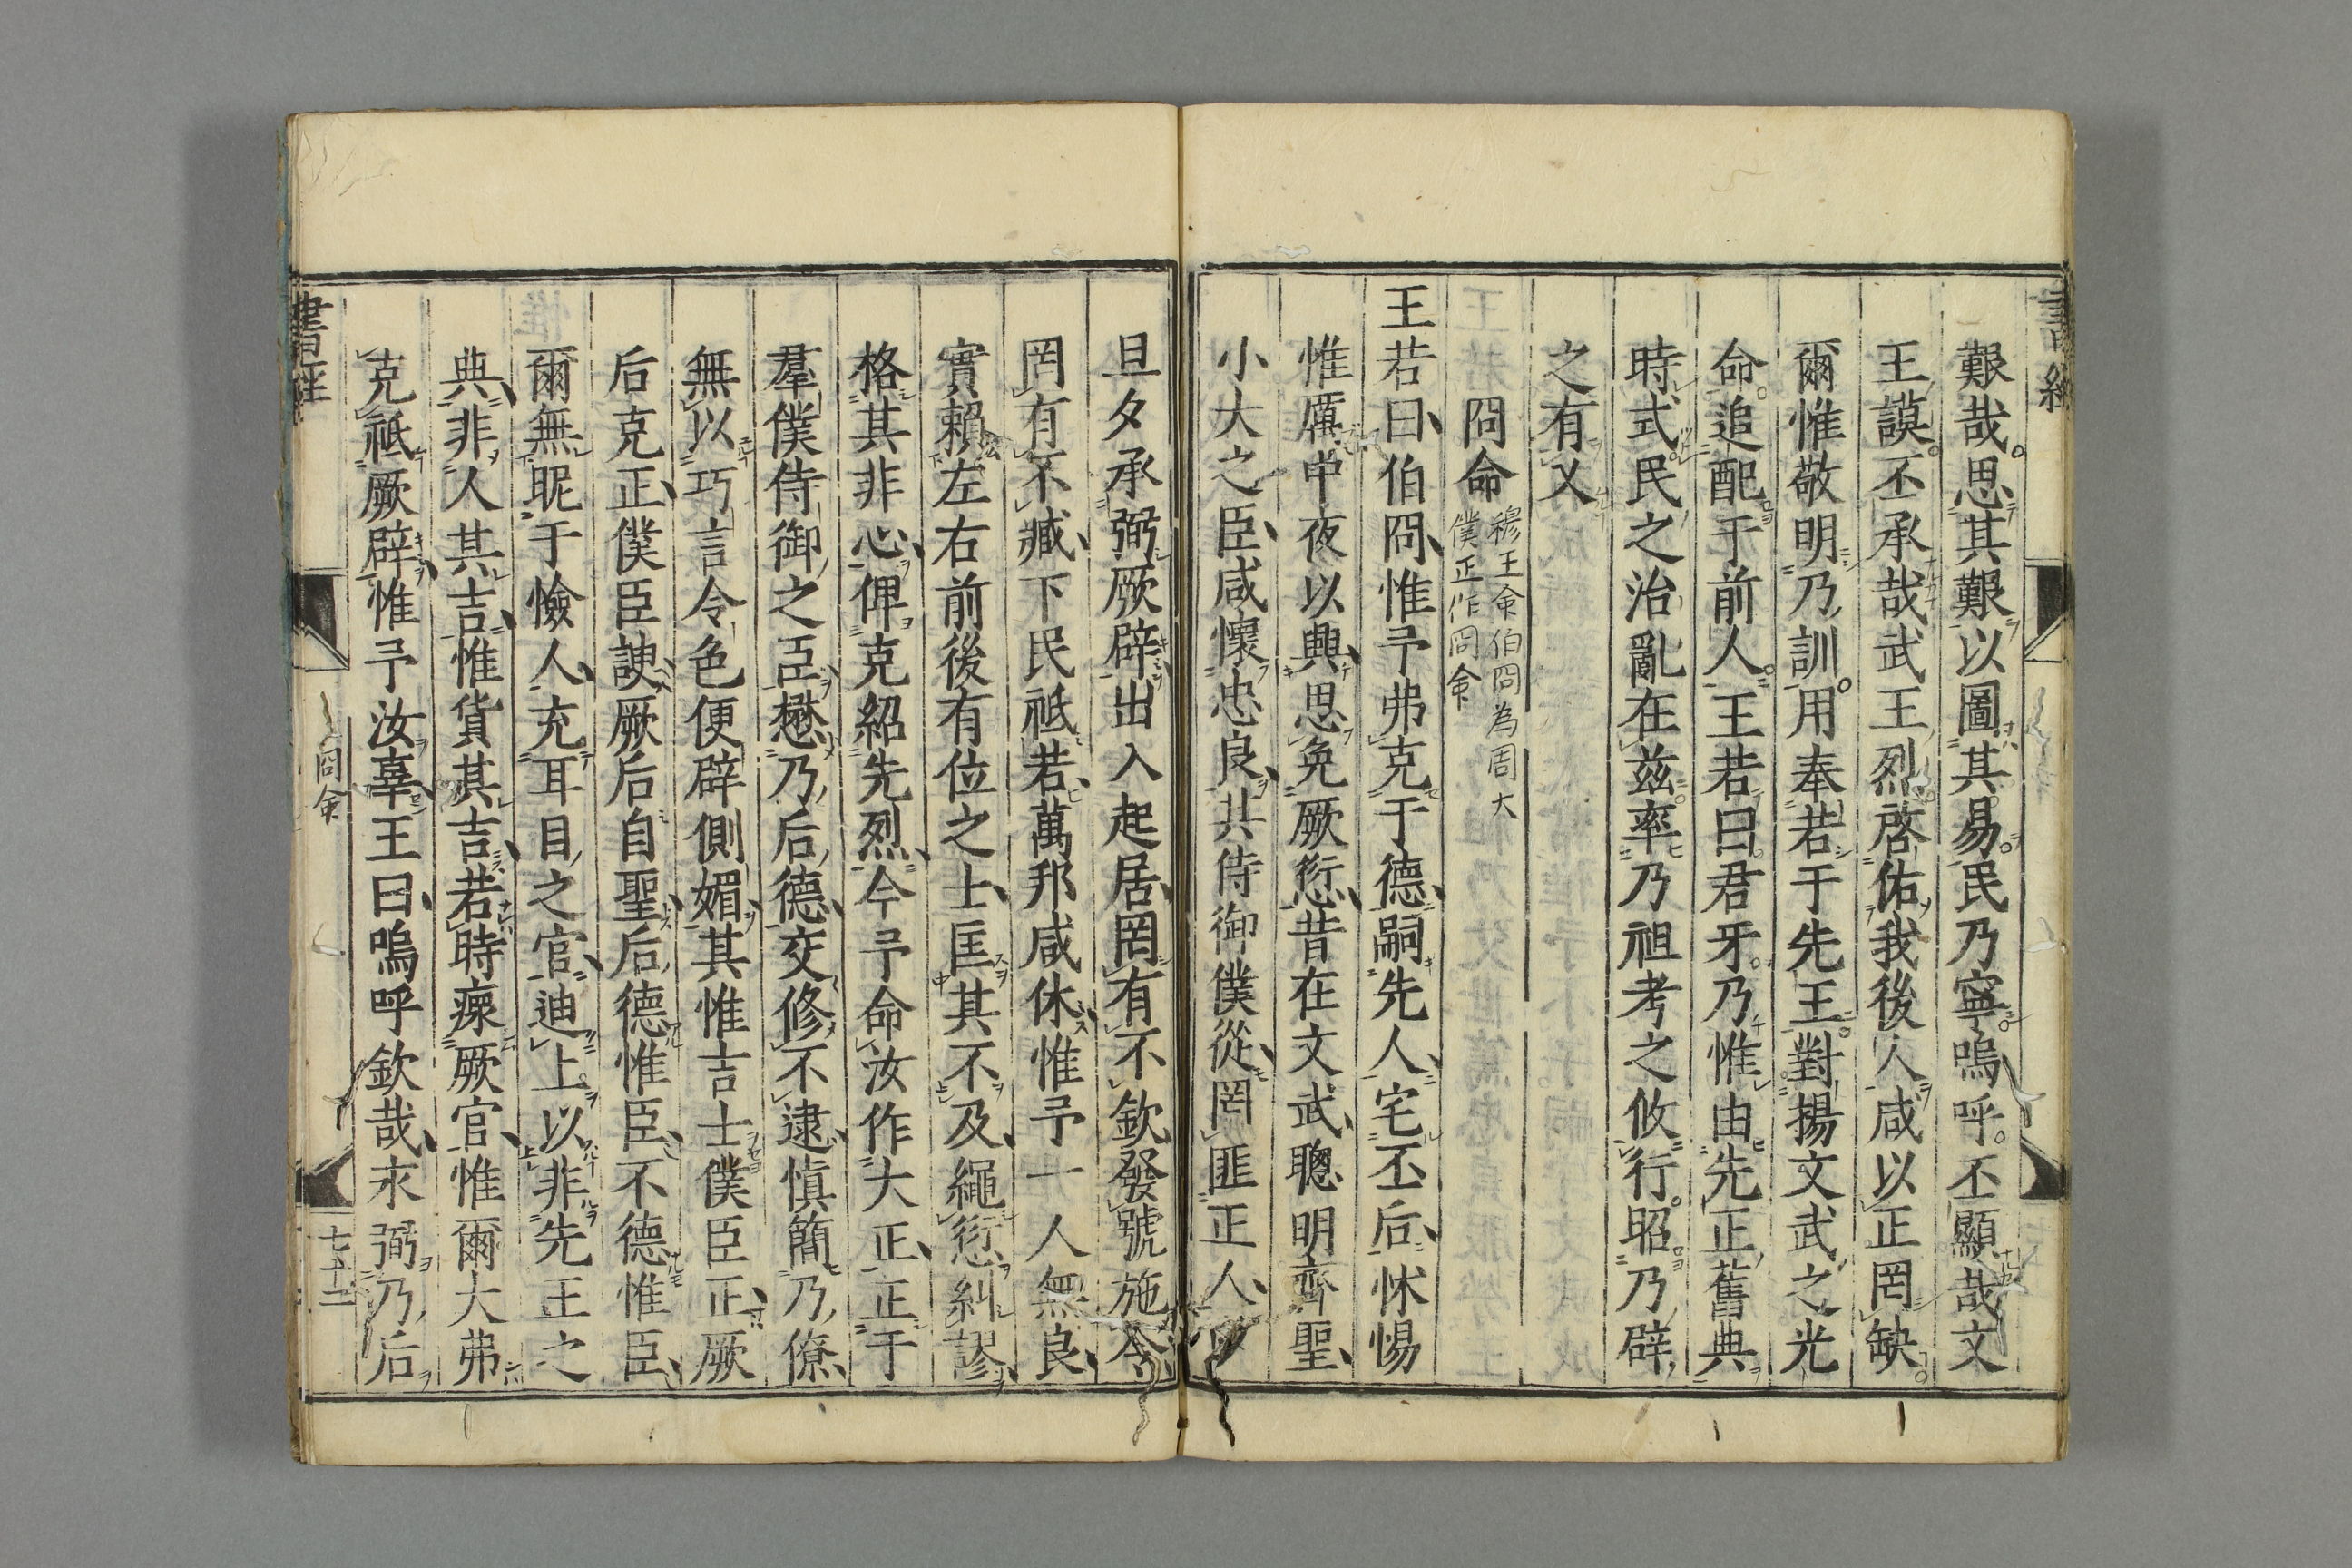 艱哉思其艱以圖其易民乃寧嗚呼丕顯哉文
王謨丕承哉武王烈啓佑我後人咸以正罔缺
爾惟敬明乃訓用奉若于先王對揚文武之光
命追配于前人王若曰君牙乃惟由先正舊典
時式民之治亂在茲率乃祖考之攸行昭乃辟
之有乂
冏命 穆王命伯冏為周大
僕正作冏命
王若曰伯冏惟予弗克于德嗣先人宅丕后怵惕
惟厲中夜以興思免厥愆昔在文武聰明齊聖
小大之臣咸懷忠良其侍御僕從罔匪正人以
旦夕承弼厥辟出入起居罔有不欽發號施令
罔有不臧下民祗若萬邦咸休惟予一人無良
實賴左右前後有位之士匡其不及繩愆糾謬
格其非心俾克紹先烈今予命汝作大正正于
羣僕侍御之臣懋乃后德交修不逮慎簡乃僚
無以巧言令色便辟側媚其惟吉士僕臣正厥
后克正僕臣諛厥后自聖后德惟臣不德惟臣
爾無昵于憸人充耳目之官迪上以非先王之
典非人其吉惟貨其吉若時瘝厥官惟爾大弗
克祗厥辟惟予汝辜王曰嗚呼欽哉永弼乃后
書經 冏命 七十二